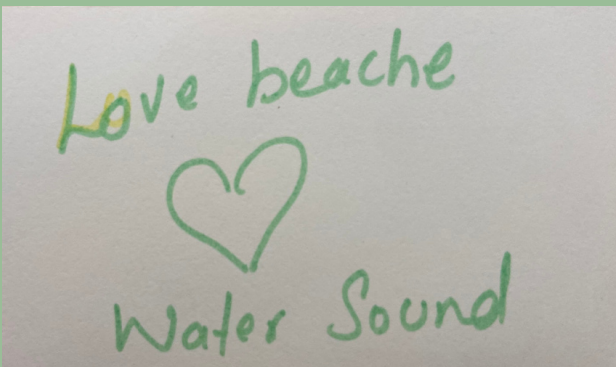 Love beache
Water Sound